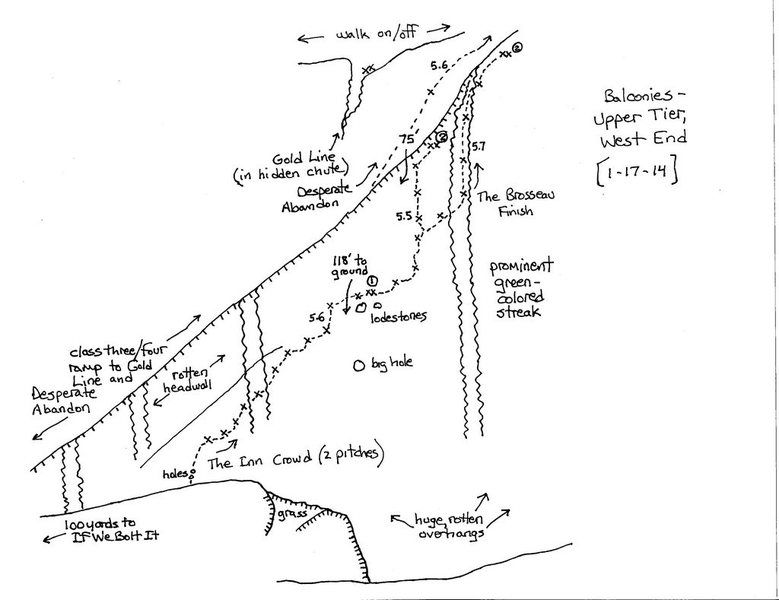 walk on/off
5.6
②
Balconies -
Upper Tier,
West End
[1-17-14]
75'
②
5.7
Gold Line
(in hidden chute)
Desperate
Abandon
The Brosseau
Finish
5.5
118' to
ground
①
5.6
lodestones
prominent
green-
colored
streak
class three/four
ramp to Gold
Line and
Desperate
Abandon
rotten
headwall
big hole
The Inn Crowd (2 pitches)
holes
grass
huge rotten
overhangs
100 yards to
If We Bolt It